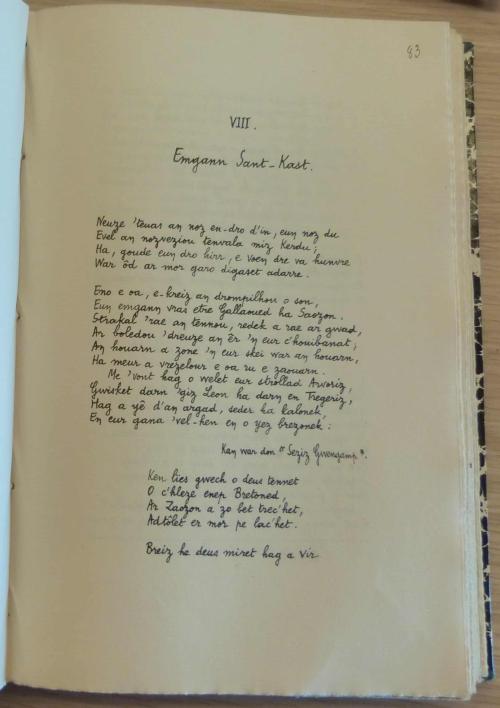 83
VIII.
Emgann Sant-Kast.
Neuze 'teuas an noz en-dro d'in, eun noz du
Evel an nozveziou tenvala miz Kerdu ;
Ha, goude eun dro hirr, e voen dre va hunvre
War ôd ar mor garo digaset adarre.
Eno e oa, e-kreiz an drompilhou o son,
Eun emgann vras etre Gallaoued ha Saozon.
Strakal 'rae an tennou, redek a rae ar gwad,
Ar boledou 'dreuze an êr 'n eur c'houibanat ;
An houarn a zone 'n eur skei war an houarn,
Ha meur a vrezelour e oa ru e zaouarn.
Me 'vont hag o welet eur strollad Arvoriz,
Gwisket darn 'giz Leon ha darn en Tregeriz,
Hag a yê d'an argad, seder ha kalonek,
En eur gana 'vel-hen en o yez brezonek :
Kan war don "Seziz Gwengamp".
Ken lies gwech o deus tennet
O c'hleze enep Bretoned,
Ar Zaozon a zo bet trec'het,
Adtôlet er mor pe lac'het.
Breiz he deus miret hag a vir